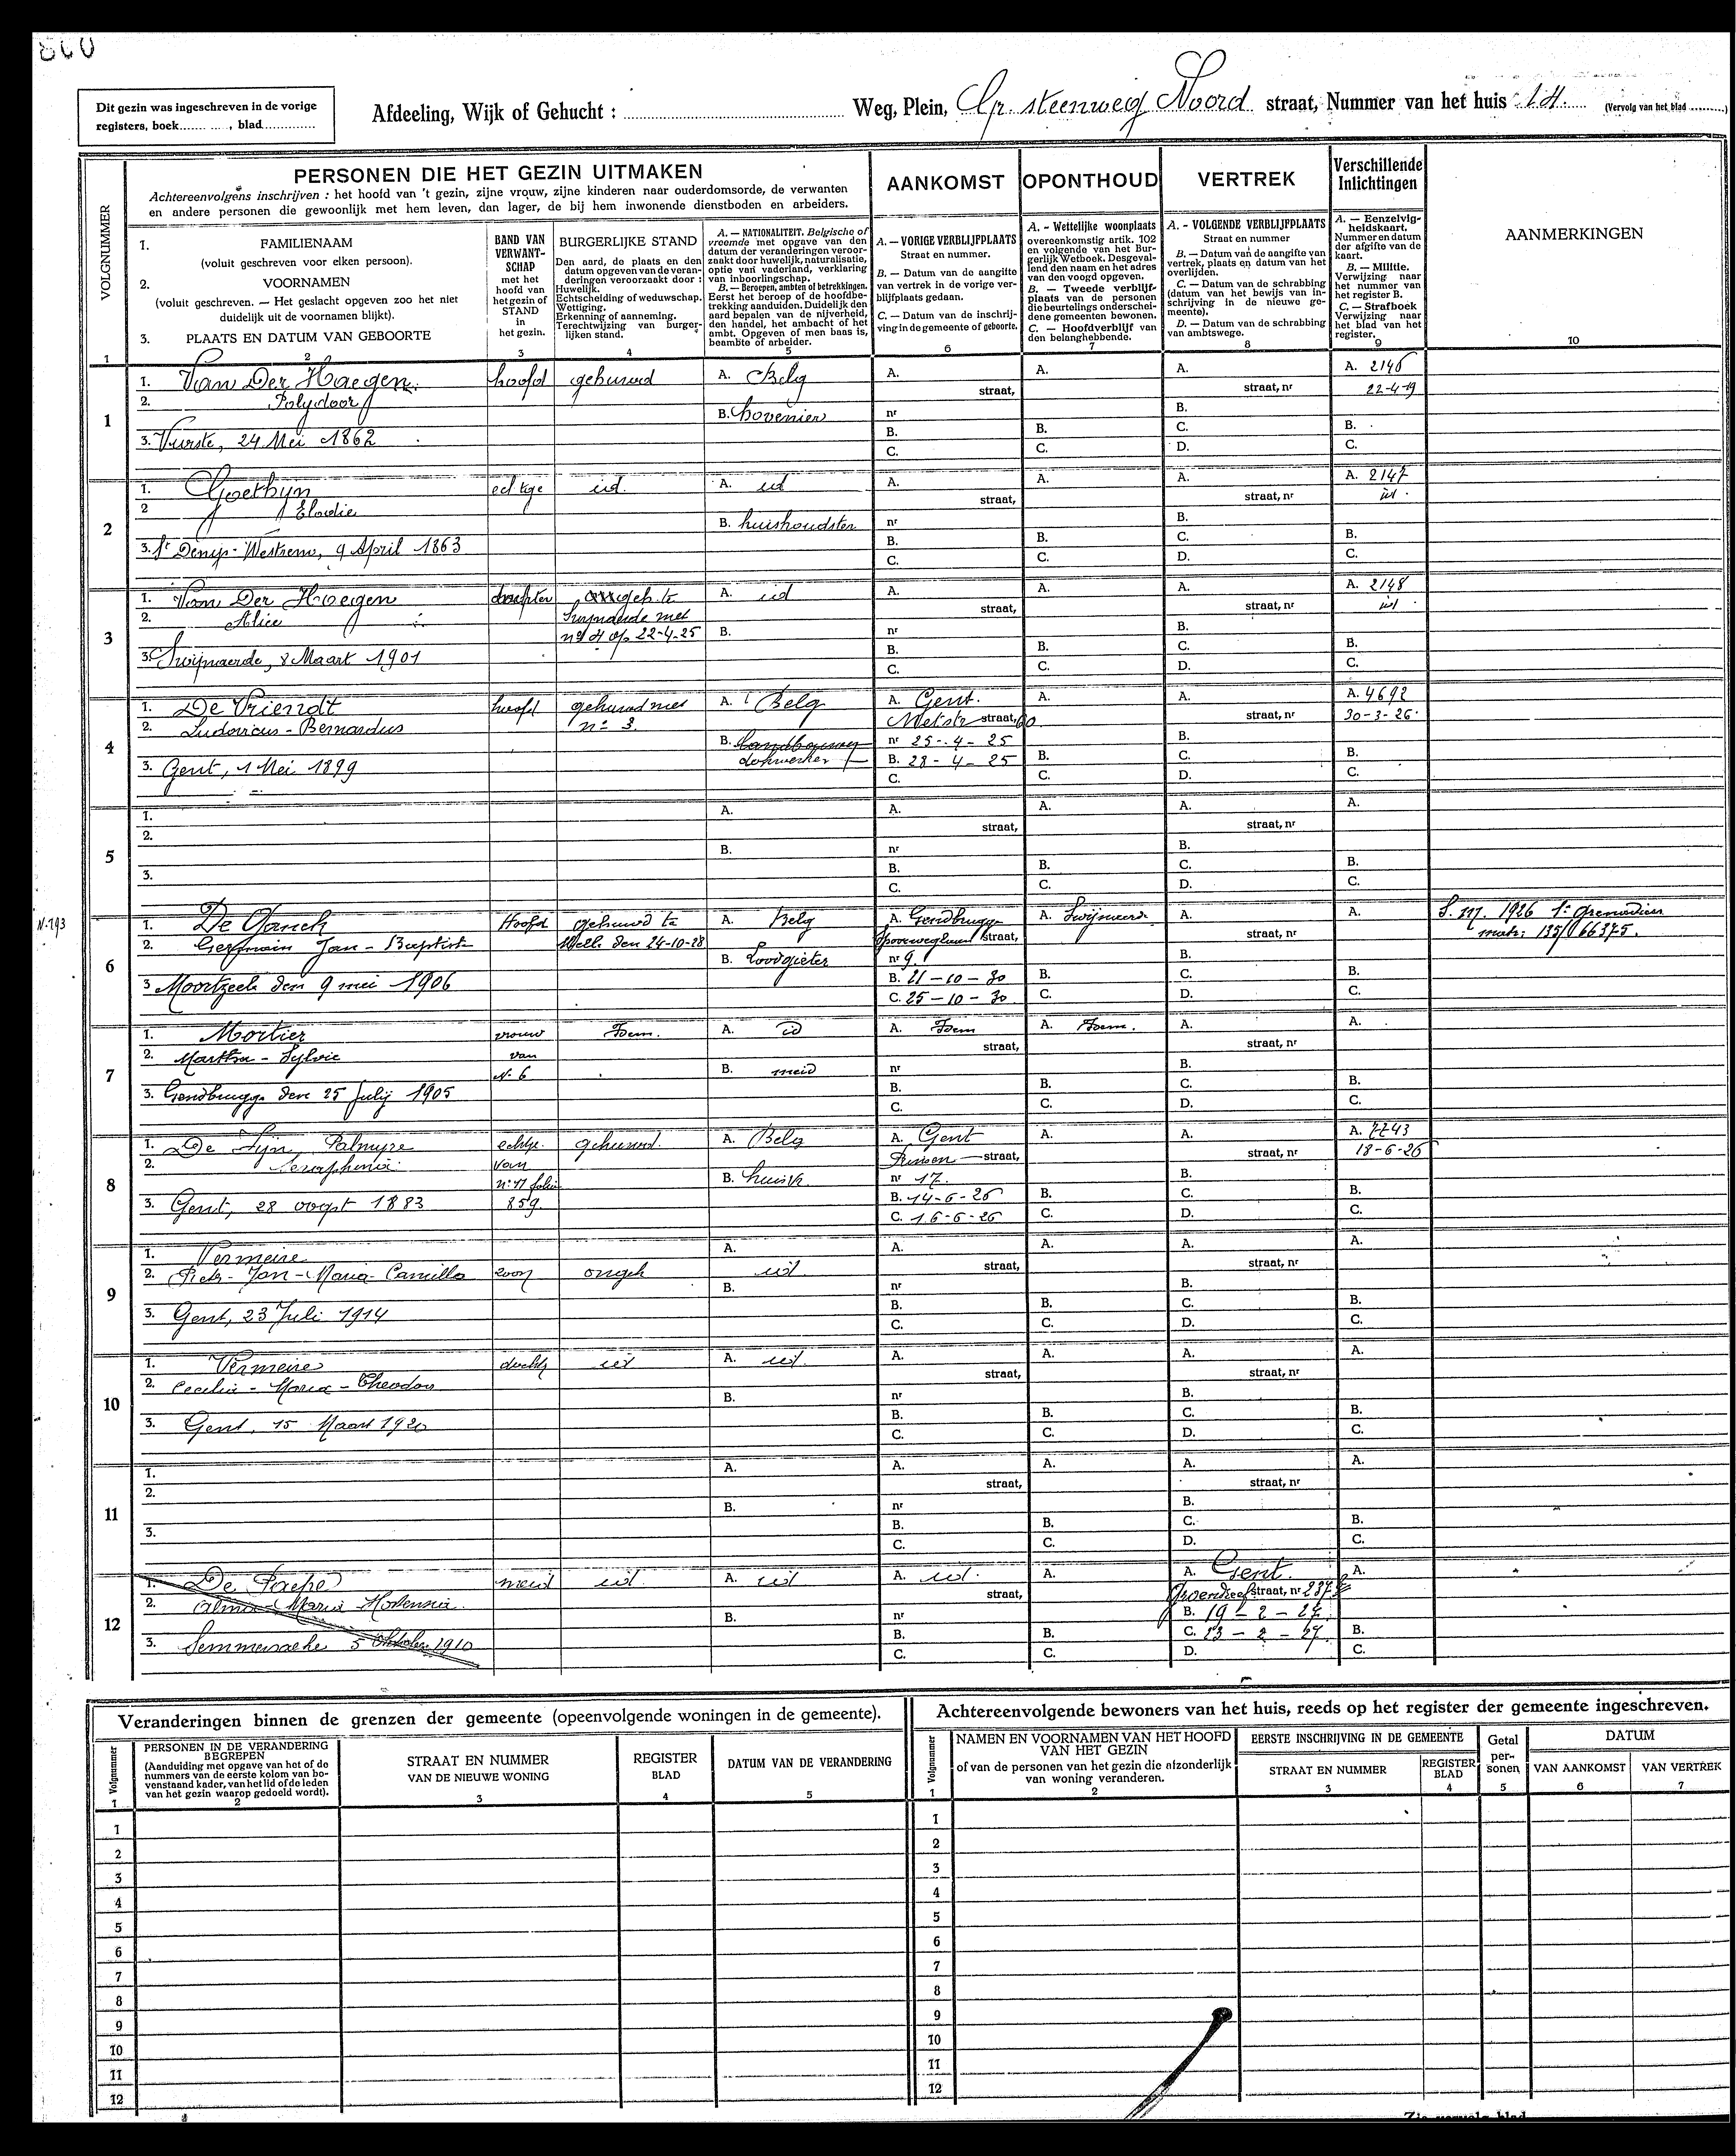 860
Dit gezin was ingeschreven in de vorige
registers, boek ........ , blad ........
Afdeeling, Wijk of Gehucht : ........ Weg, Plein, Gr. steenweg Noord straat, Nummer van het huis 14. (Vervolg van het blad ........)
VOLGNUMMER
PERSONEN DIE HET GEZIN UITMAKEN
Achtereenvolgens inschrijven : het hoofd van 't gezin, zijne vrouw, zijne kinderen naar ouderdomsorde, de verwanten
en andere personen die gewoonlijk met hem leven, dan lager, de bij hem inwonende dienstboden en arbeiders.
AANKOMST
OPONTHOUD
VERTREK
Verschillende
Inlichtingen
AANMERKINGEN
1. FAMILIENAAM
(voluit geschreven voor elken persoon).
2. VOORNAMEN
(voluit geschreven. — Het geslacht opgeven zoo het niet
duidelijk uit de voornamen blijkt).
3. PLAATS EN DATUM VAN GEBOORTE
BAND VAN
VERWANT-
SCHAP
met het
hoofd van
het gezin of
STAND
in
het gezin.
BURGERLIJKE STAND
Den aard, de plaats en den
datum opgeven van de veran-
deringen veroorzaakt door :
Huwelijk.
Echtscheiding of weduwschap.
Wettiging.
Erkenning of aanneming.
Terechtwijzing van burger-
lijken stand.
A. — NATIONALITEIT. Belgische of
vreemde met opgave van den
datum der veranderingen veroor-
zaakt door huwelijk, naturalisatie,
optie van vaderland, verklaring
van inboorlingschap.
B. — Beroepen, ambten of betrekkingen.
Eerst het beroep of de hoofdbe-
trekking aanduiden. Duidelijk den
aard bepalen van de nijverheid,
den handel, het ambacht of het
ambt. Opgeven of men baas is,
beambte of arbeider.
A. — VORIGE VERBLIJFPLAATS
Straat en nummer.
B. — Datum van de aangifte
van vertrek in de vorige ver-
blijfplaats gedaan.
C. — Datum van de inschrij-
ving in de gemeente of geboorte.
A. - Wettelijke woonplaats
overeenkomstig artik. 102
en volgende van het Bur-
gerlijk Wetboek. Desgeval-
lend den naam en het adres
van den voogd opgeven.
B. — Tweede verblijf-
plaats van de personen
die beurtelings onderschei-
dene gemeenten bewonen.
C. — Hoofdverblijf van
den belanghebbende.
A. - VOLGENDE VERBLIJFPLAATS
Straat en nummer
B. — Datum van de aangifte van
vertrek, plaats en datum van het
overlijden.
C. — Datum van de schrabbing
(datum van het bewijs van in-
schrijving in de nieuwe ge-
meente).
D. — Datum van de schrabbing
van ambtswege.
A. — Eenzelvig-
heldskaart.
Nummer en datum
der afgifte van de
kaart.
B. — Militie.
Verwijzing naar
het nummer van
het register B.
C. — Strafboek
Verwijzing naar
het blad van het
register.
1 2 3 4 5 6 7 8 9 10
1. Van Der Haegen hoofd gehuwd A. Belg A. A. A. A. 2146
2. Polydoor straat, straat, nr 22-4-19
1 B. hovenier nr B.
3. Vurste, 24 Mei 1862 B. B. C. B.
C. C. D. C.
1. Goethijn echtge id. A. id A. A. A. A. 2147
2 Elodie straat, straat, nr id.
2 B. huishoudster nr B.
3. St Denijs-Westrem, 9 April 1863 B. B. C. B.
C. C. D. C.
1. Van Der Haegen dochter geh. te A. id A. A. A. A. 2148
2. Alice Swijnaerde met straat, straat, nr id
3 no 4 op 22-4-25 B. nr B.
3. Swijnaerde, 8 Maart 1901 B. B. C. B.
C. C. D. C.
1. De Vriendt hoofd gehuwd met A. Belg A. Gent. A. A. A. 4692
2. Ludovicus - Bernardus no 3. straat, 60 straat, nr 30-3-26
4 B. nr 25-4-25 B.
3. Gent, 1 Mei 1899 B. 28-4-25 B. C. B.
C. C. D. C.
1. A. A. A. A. A.
2. straat, straat, nr
5 B. nr B.
3. B. B. C. B.
C. C. D. C.
N. 793
1. De Ganck Hoofd gehuwd te A. Belg A. Gendbrugge A. Swijnaerde A. A. S. M. 1926 1e Grenadiers
2. Germain Jan-Baptist Melle den 24-10-28 straat, straat, nr matr: 135/66375.
6 B. Loodgieter nr 9. B.
3 Moortzeele den 9 mei 1906 B. 21-10-30 B. C. B.
C. 25-10-30 C. D. C.
1. Mortier vrouw Idem. A. id A. Idem A. Idem. A. A.
2. Martha - Sylvie van straat, straat, nr
7 N. 6 B. meid nr B.
3. Gendbrugge den 25 July 1905 B. B. C. B.
C. C. D. C.
1. De Fijn, Palmyre echtge. gehuwd. A. Belg A. Gent A. A. A. 7743
2. Seraphenia van straat, straat, nr 18-6-26
8 no 11 folio B. huish nr 17. B.
3. Gent, 28 oogst 1883 859. B. 14-6-26 B. C. B.
C. 16-6-26 C. D. C.
1. Vermeire A. A. A. A. A.
2. Pieter-Jan-Maria-Camillo zoon ongeh id. straat, straat, nr
9 B. nr B.
3. Gent, 23 Juli 1914 B. B. C. B.
C. C. D. C.
1. Vermeire dochter id A. id. A. A. A. A.
2. Cecilia - Maria - Theodora straat, straat, nr
10 B. nr B.
3. Gent, 15 Maart 1920 B. B. C. B.
C. C. D. C.
1. A. A. A. A. A.
2. straat, straat, nr
11 B. nr B.
3. B. B. C. B.
C. C. D. C.
1. De Paepe meid id. A. id A. id. A. A. Gent. A.
2. Alma - Maria Hortensia. straat, Groendreef straat, nr 237
12 B. nr B. 19-2-27.
3. Semmersacke 5 Oktober 1910 B. B. C. 23-2-27. B.
C. C. D. C.
Veranderingen binnen de grenzen der gemeente (opeenvolgende woningen in de gemeente).
Achtereenvolgende bewoners van het huis, reeds op het register der gemeente ingeschreven.
Volgnummer
PERSONEN IN DE VERANDERING
BEGREPEN
(Aanduiding met opgave van het of de
nummers van de eerste kolom van bo-
venstaand kader, van het lid of de leden
van het gezin waarop gedoeld wordt).
STRAAT EN NUMMER
VAN DE NIEUWE WONING
REGISTER
BLAD
DATUM VAN DE VERANDERING
1 2 3 4 5
Volgnummer
NAMEN EN VOORNAMEN VAN HET HOOFD
VAN HET GEZIN
of van de personen van het gezin die afzonderlijk
van woning veranderen.
EERSTE INSCHRIJVING IN DE GEMEENTE
STRAAT EN NUMMER
REGISTER
BLAD
Getal
per-
sonen
DATUM
VAN AANKOMST
VAN VERTREK
1 2 3 4 5 6 7
1 1
2 2
3 3
4 4
5 5
6 6
7 7
8 8
9 9
10 10
11 11
12 12